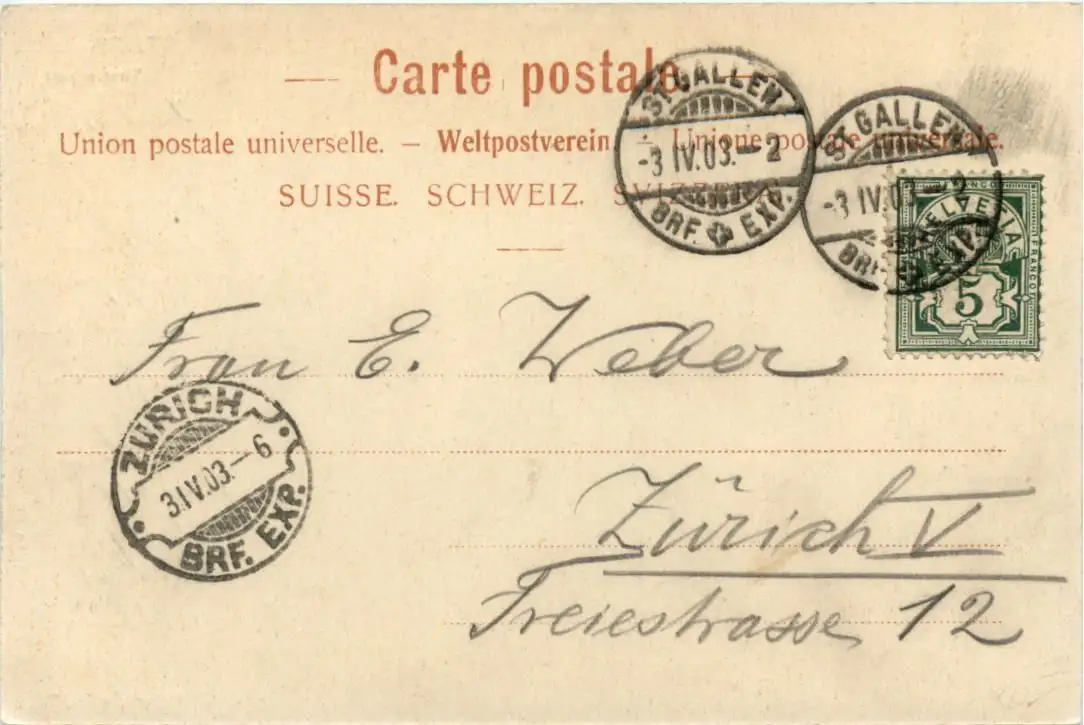 Carte postale
Union postale universelle. — Weltpostverein. — Unione postale universale.
SUISSE. SCHWEIZ. SVIZZERA.
ST. GALLEN
-3 IV.03.—2
BRF. EXP.
ST. GALLEN
-3 IV.03.—2
BRF. EXP.
FRANCO
HELVETIA
FRANCO
5
Frau E. Weber
ZÜRICH
3.IV.03.—6
BRF. EXP.
Zürich V
Freiestrasse 12